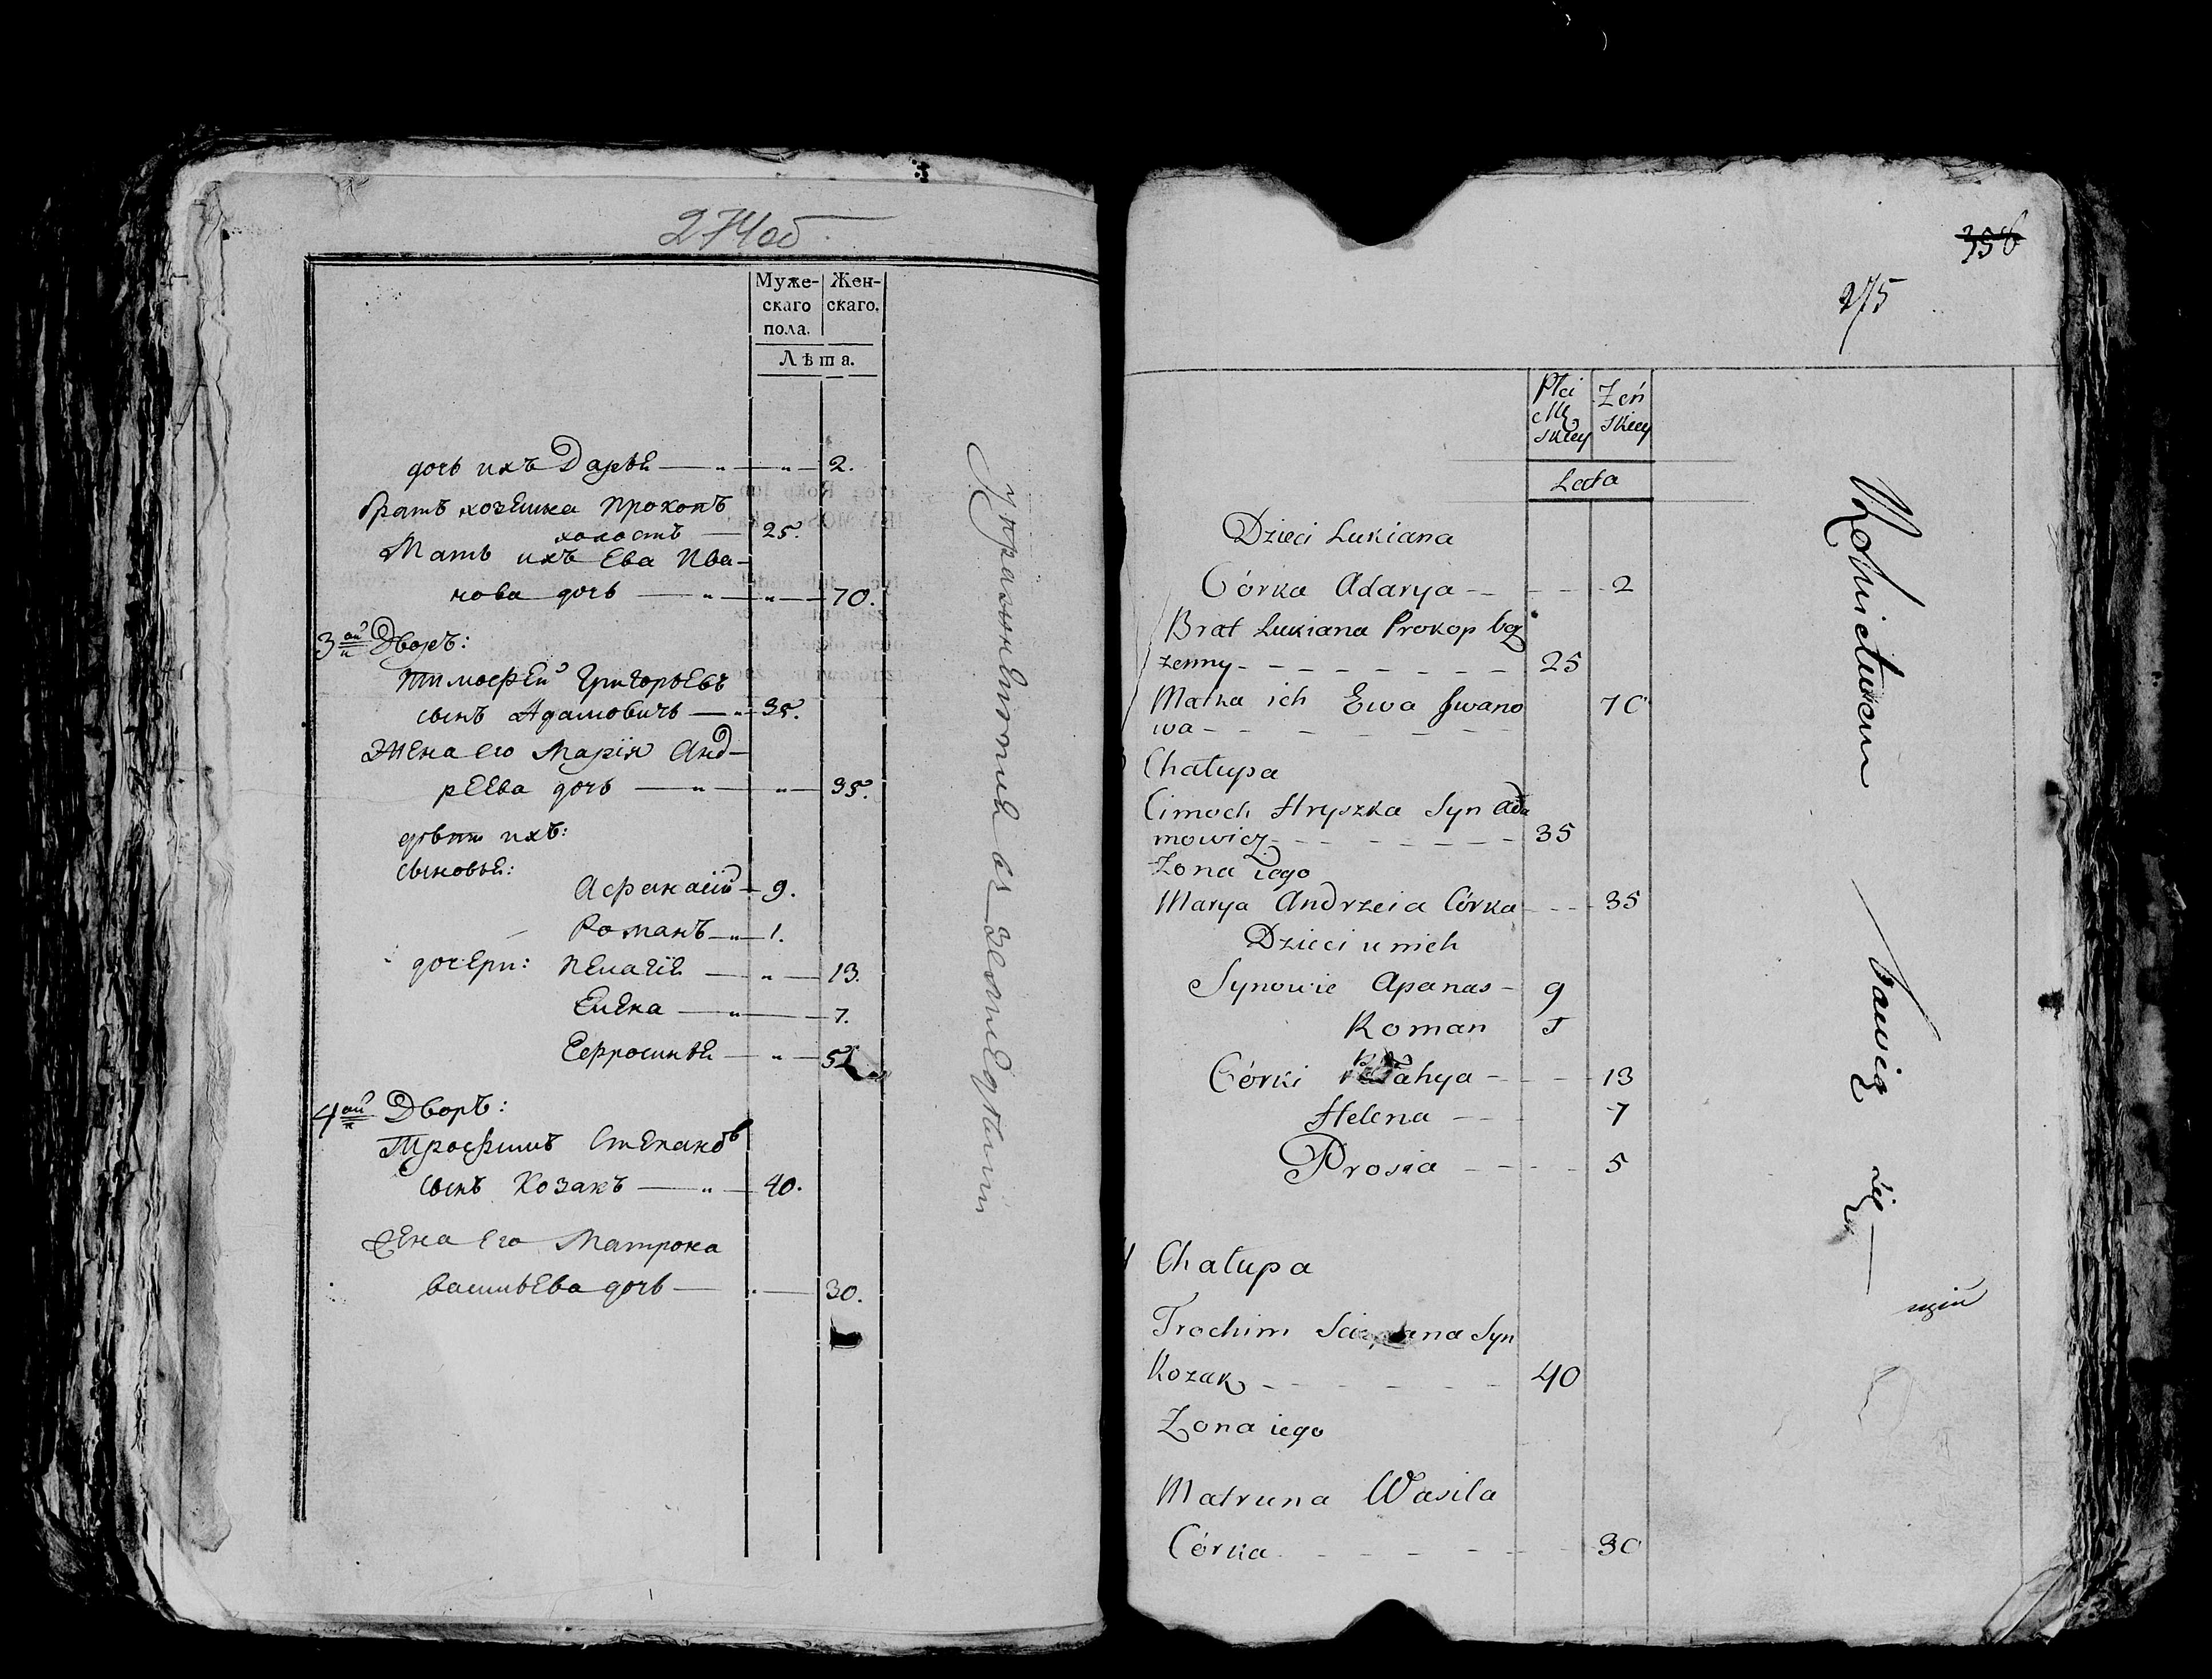 274об
Муже- Жен-
скаго скаго.
пола.
Лѣта.
дочь ихъ Дарья — " — " — 2.
братъ хозяина Прокопъ
холостъ — 25.
Мать ихъ Ева Ива-
нова дочь — " — " — 70.
3ай Дворъ:
Тимофей Григорьевъ
сынъ Адамовичъ — " — 35.
Жена его Марія Анд-
реева дочь — " — " — 35.
дѣти ихъ:
сыновья:
Афанасій — 9.
Романъ — " — 1.
дочери: Пелагія — " — 13.
Елена — " — 7.
Ефросинья — " — 5
4ай Дворъ:
Трофимъ Степановъ
сынъ Козакъ — " — 40.
Жена его Матрона
Васильева дочь — 30.
упражняются въ земледѣліи
356
275
Płci Zeń
Mę skiey
skiey
Lata
Dzieci Lukiana
Córka Adarya - - 2
Brat Lukiana Prokop bez
zenny - - - 25
Matka ich Ewa Jwano 70
wa - - -
Chałupa
Cimoch Hryszka Syn Ada
mowicz - - - 35
Zona iego
Marya Andrzeia Córka - - 35
Dzieci u nich
Synowie Apanas - 9
Roman 1
Córki - - 13
Helena - - 7
Prosia - - - 5
4 Chałupa
Trochim Syn
Kozak - - - 40
Zona iego
Matruna Wasila
Córka - - - 30
Rolnictwem bawią się —